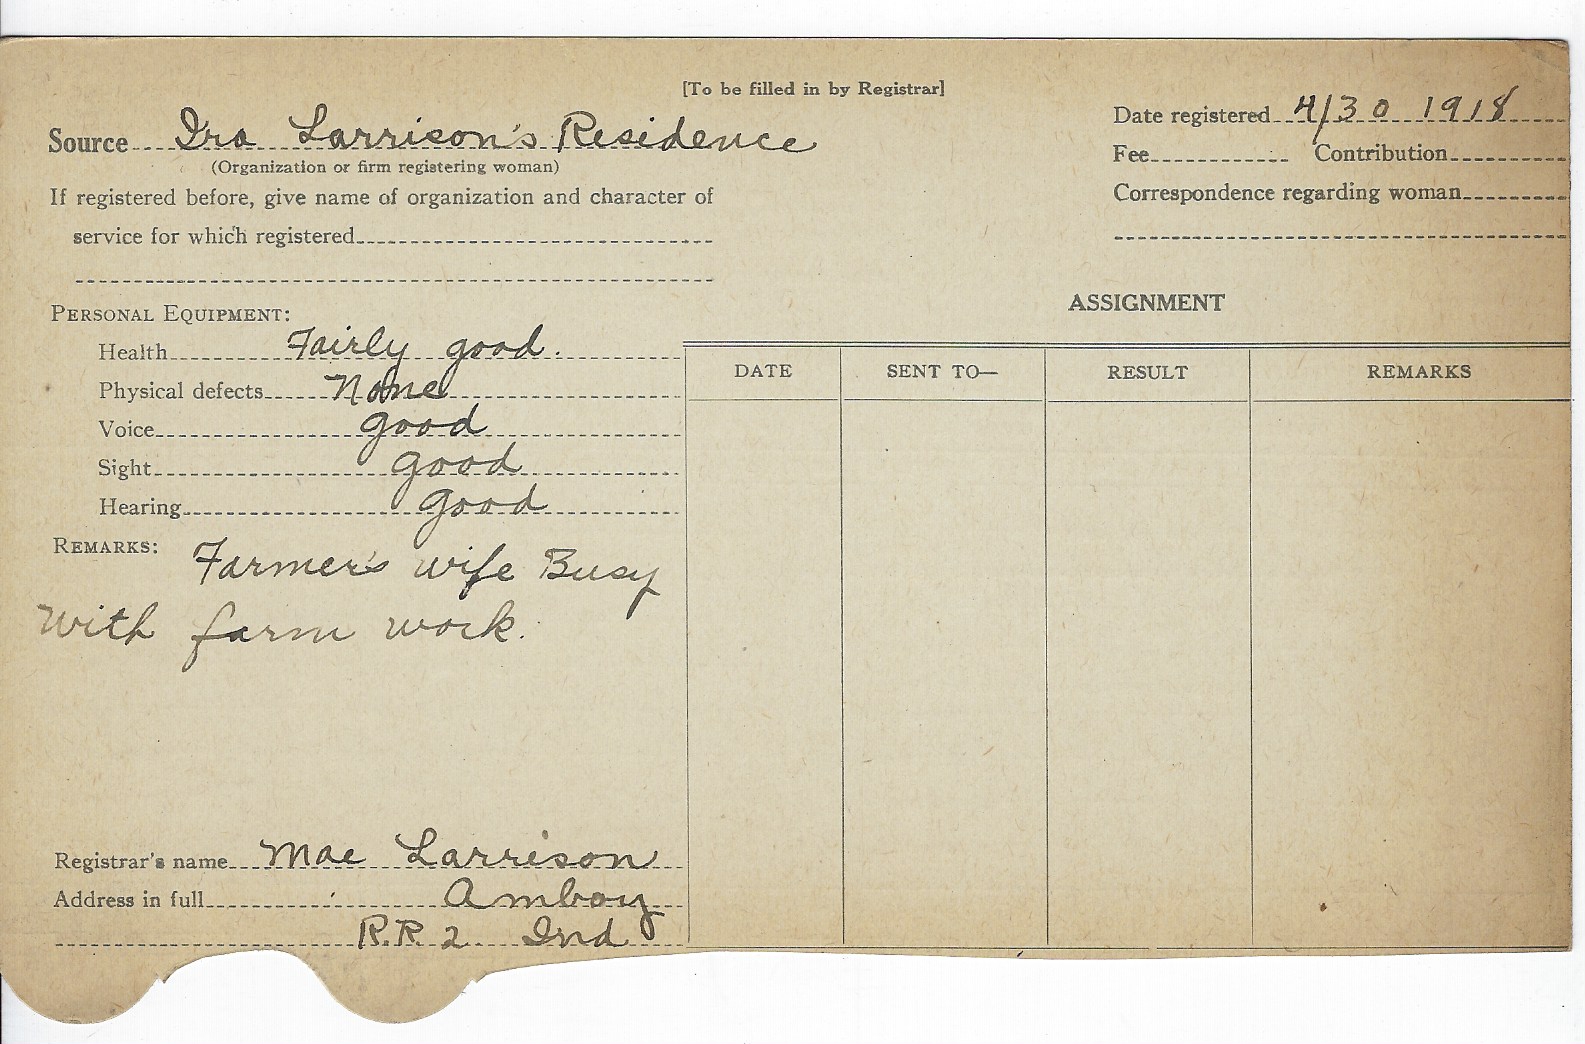 [To be filled in by Registrar]
Source Ira Larrison's Residence
(Organization or firm registering woman)
If registered before, give name of organization and character of
service for which registered
Date registered 4/30 1918
Fee Contribution
Correspondence regarding woman
PERSONAL EQUIPMENT:
Health Fairly good.
Physical defects None
Voice good
Sight good
Hearing good
REMARKS: Farmer's wife Busy
With farm work.
Registrar's name Mae Larrison
Address in full Amboy
R.R. 2 Ind
ASSIGNMENT
DATE SENT TO— RESULT REMARKS